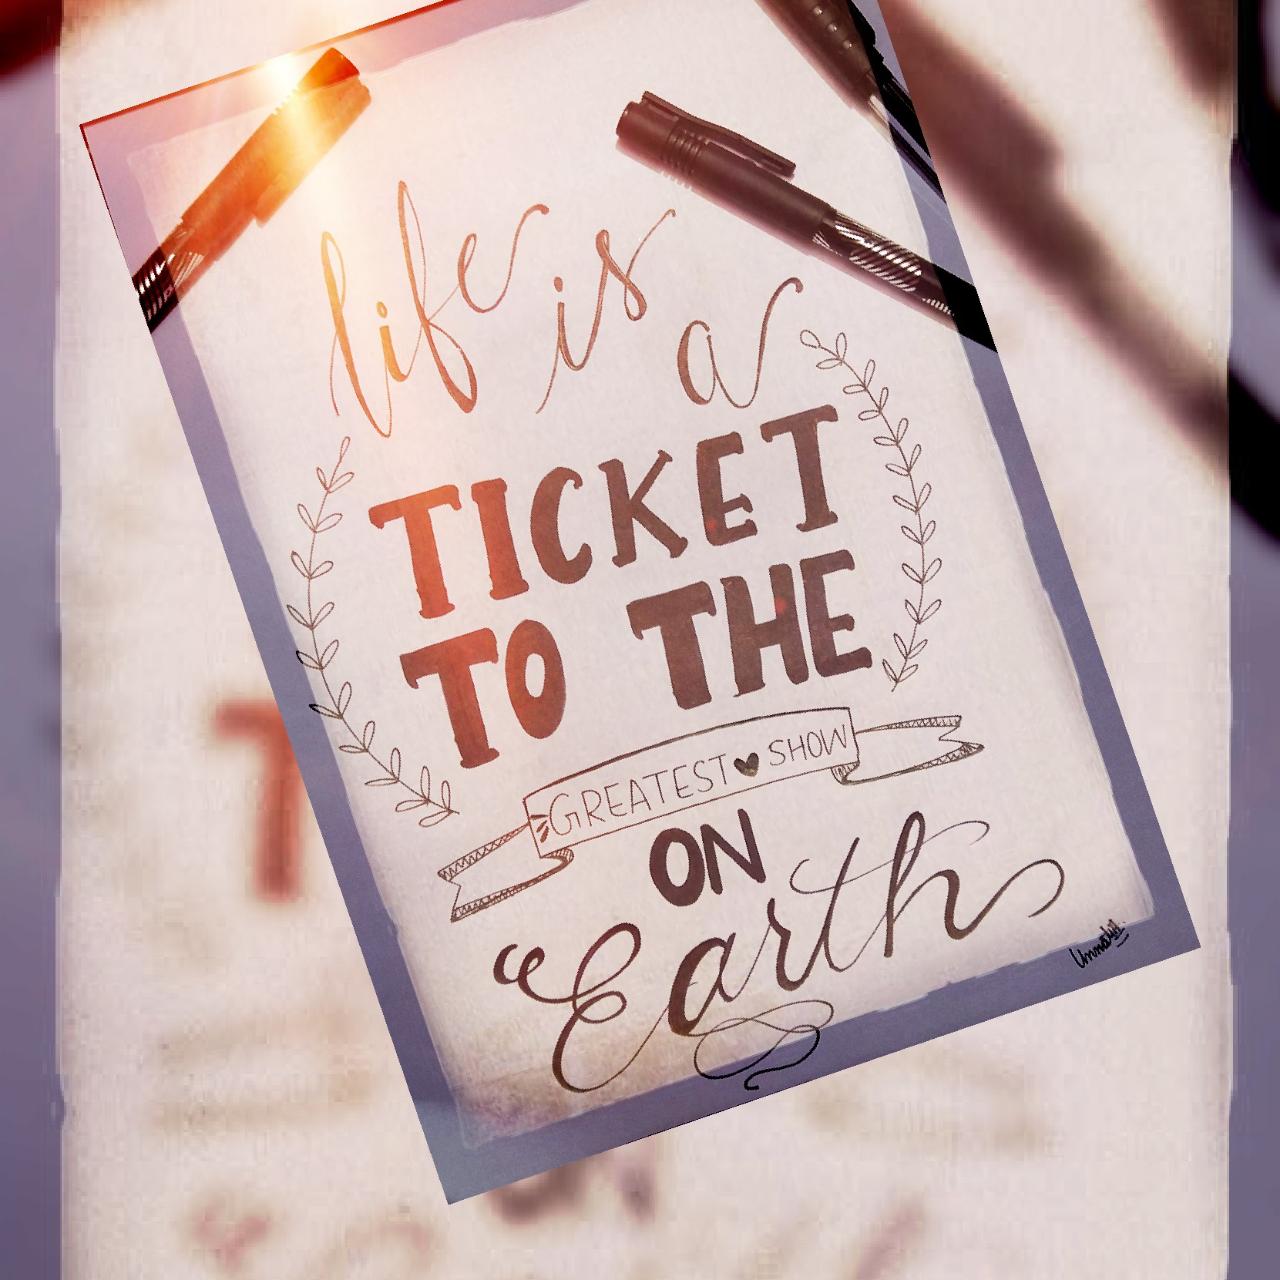 life is a
TICKET
TO THE
GREATEST ♥ SHOW
ON
Earth